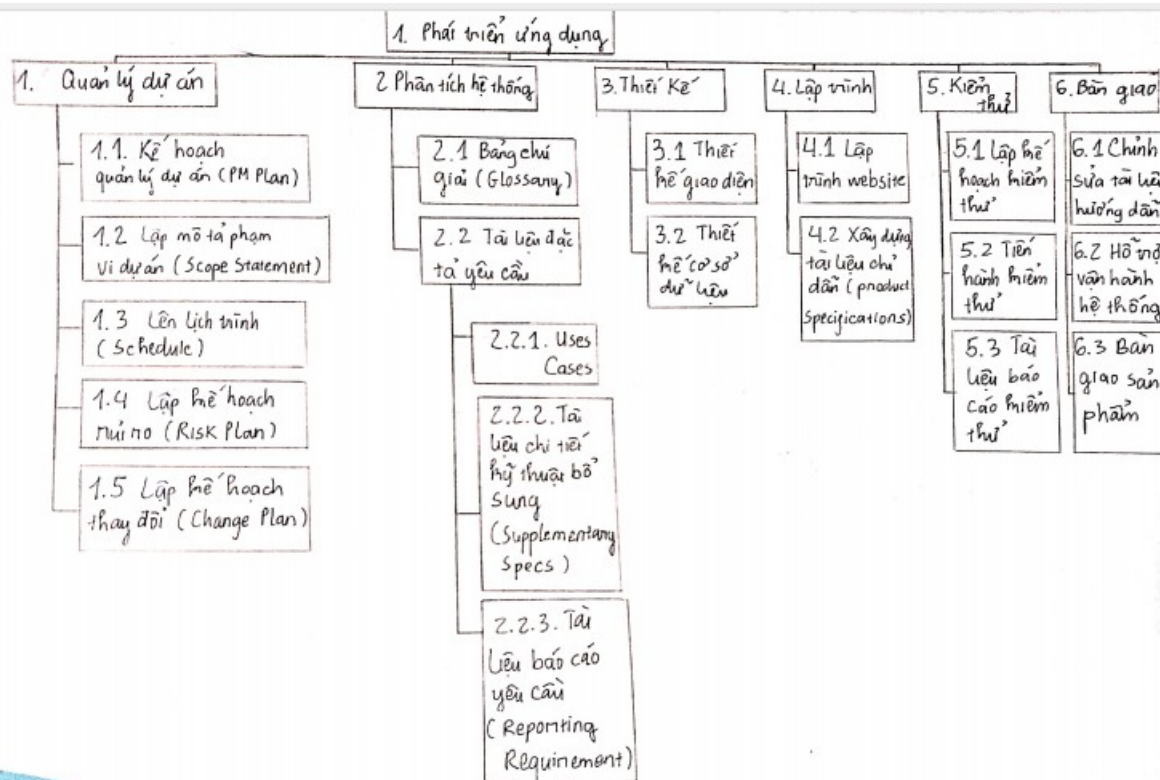 1. Phát triển ứng dụng
1. Quản lý dự án
1.1. Kế hoạch
quản lý dự án (PM Plan)
1.2 Lập mô tả phạm
vi dự án (Scope Statement)
1.3 Lên lịch trình
(Schedule)
1.4 Lập kế hoạch
rủi ro (Risk Plan)
1.5 Lập kế hoạch
thay đổi (Change Plan)
2 Phân tích hệ thống
2.1 Bảng chú
giải (Glossary)
2.2 Tài liệu đặc
tả yêu cầu
2.2.1. Uses
Cases
2.2.2. Tài
liệu chi tiết
kỹ thuật bổ
sung
(Supplementary
Specs)
2.2.3. Tài
liệu báo cáo
yêu cầu
(Reporting
Requirement)
3. Thiết Kế
3.1 Thiết
kế giao diện
3.2 Thiết
kế cơ sở
dữ liệu
4. Lập trình
4.1 Lập
trình website
4.2 Xây dựng
tài liệu chỉ
dẫn (product
specifications)
5. Kiểm
thử
5.1 Lập kế
hoạch kiểm
thử
5.2 Tiến
hành kiểm
thử
5.3 Tài
liệu báo
cáo kiểm
thử
6. Bàn giao
6.1 Chỉnh
sửa tài liệu
hướng dẫn
6.2 Hỗ trợ
vận hành
hệ thống
6.3 Bàn
giao sản
phẩm